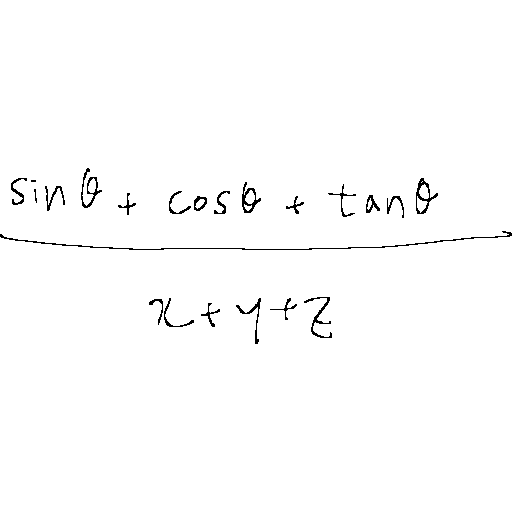 sinθ + cosθ + tanθ
x+y+z